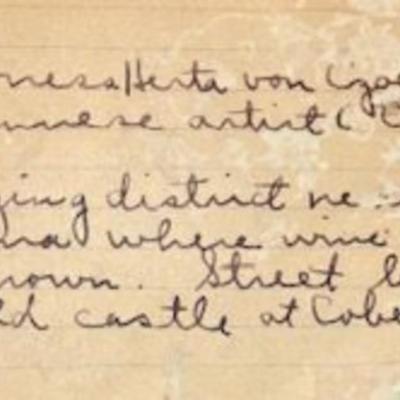 ness Herta von
nnese artist (
ing district ne
na where wine
nown. Street
ld castle at Cobe